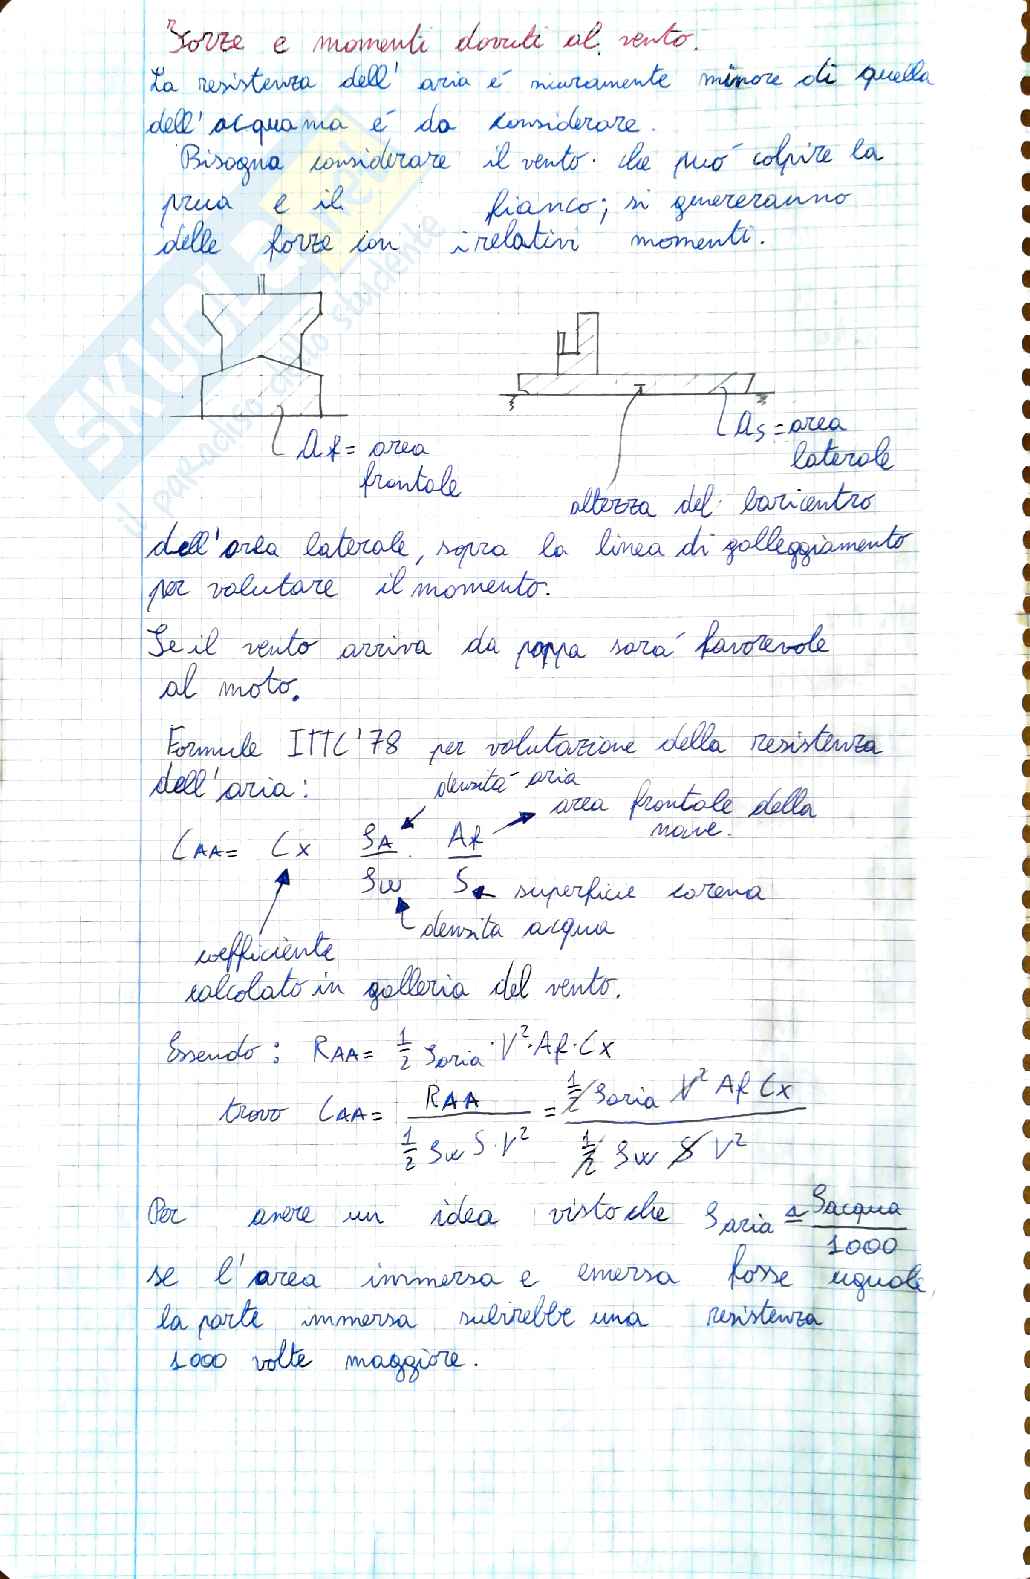 Forze e momenti dovuti al vento.
La resistenza dell' aria é sicuramente minore di quella
dell'acqua ma é da considerare.
Bisogna considerare il vento che può colpire la
prua e il fianco; si genereranno
delle forze con i relativi momenti.
Af = area
frontale
As = area
laterale
altezza del baricentro
dell'area laterale, sopra la linea di galleggiamento
per valutare il momento.
Se il vento arriva da poppa sará favorevole
al moto.
Formule ITTC '78 per valutazione della resistenza
dell'aria:
densitá aria
area frontale della
nave.
CAA = Cx ρA/ρw Af/S
superficie carena
densita acqua
coefficiente
calcolato in galleria del vento.
Essendo: RAA = 1/2 ρaria · V² · Af · Cx
trovo CAA = RAA / (1/2 ρw S · V²) = (1/2 ρaria V² Af Cx) / (1/2 ρw S V²)
Per avere un idea visto che ρaria ≅ ρacqua/1000
se l'area immersa e emersa fosse uguale,
la parte immersa subirebbe una resistenza
1000 volte maggiore.
SKUOLA.net
il paradiso dello studente